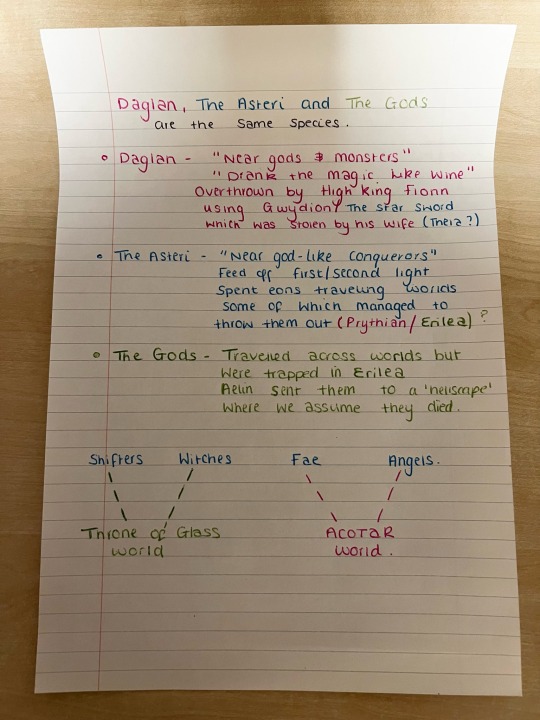 Daglan, The Asteri and The Gods
are the same species.
• Daglan - "Near gods & monsters"
"Drank the magic like wine"
Overthrown by High king Fionn
using Gwydion/ The star sword
which was stolen by his wife (Theia?)
• The Asteri - "Near god-like conquerors"
Feed off first/second light
Spent eons traveling worlds
some of which managed to
throw them out (Prythian/Erilea)?
• The Gods - Travelled across worlds but
were trapped in Erilea
Aelin sent them to a 'hellscape'
where we assume they died.
Shifters Witches Fae Angels.
Throne of Glass ACOTAR
world world.